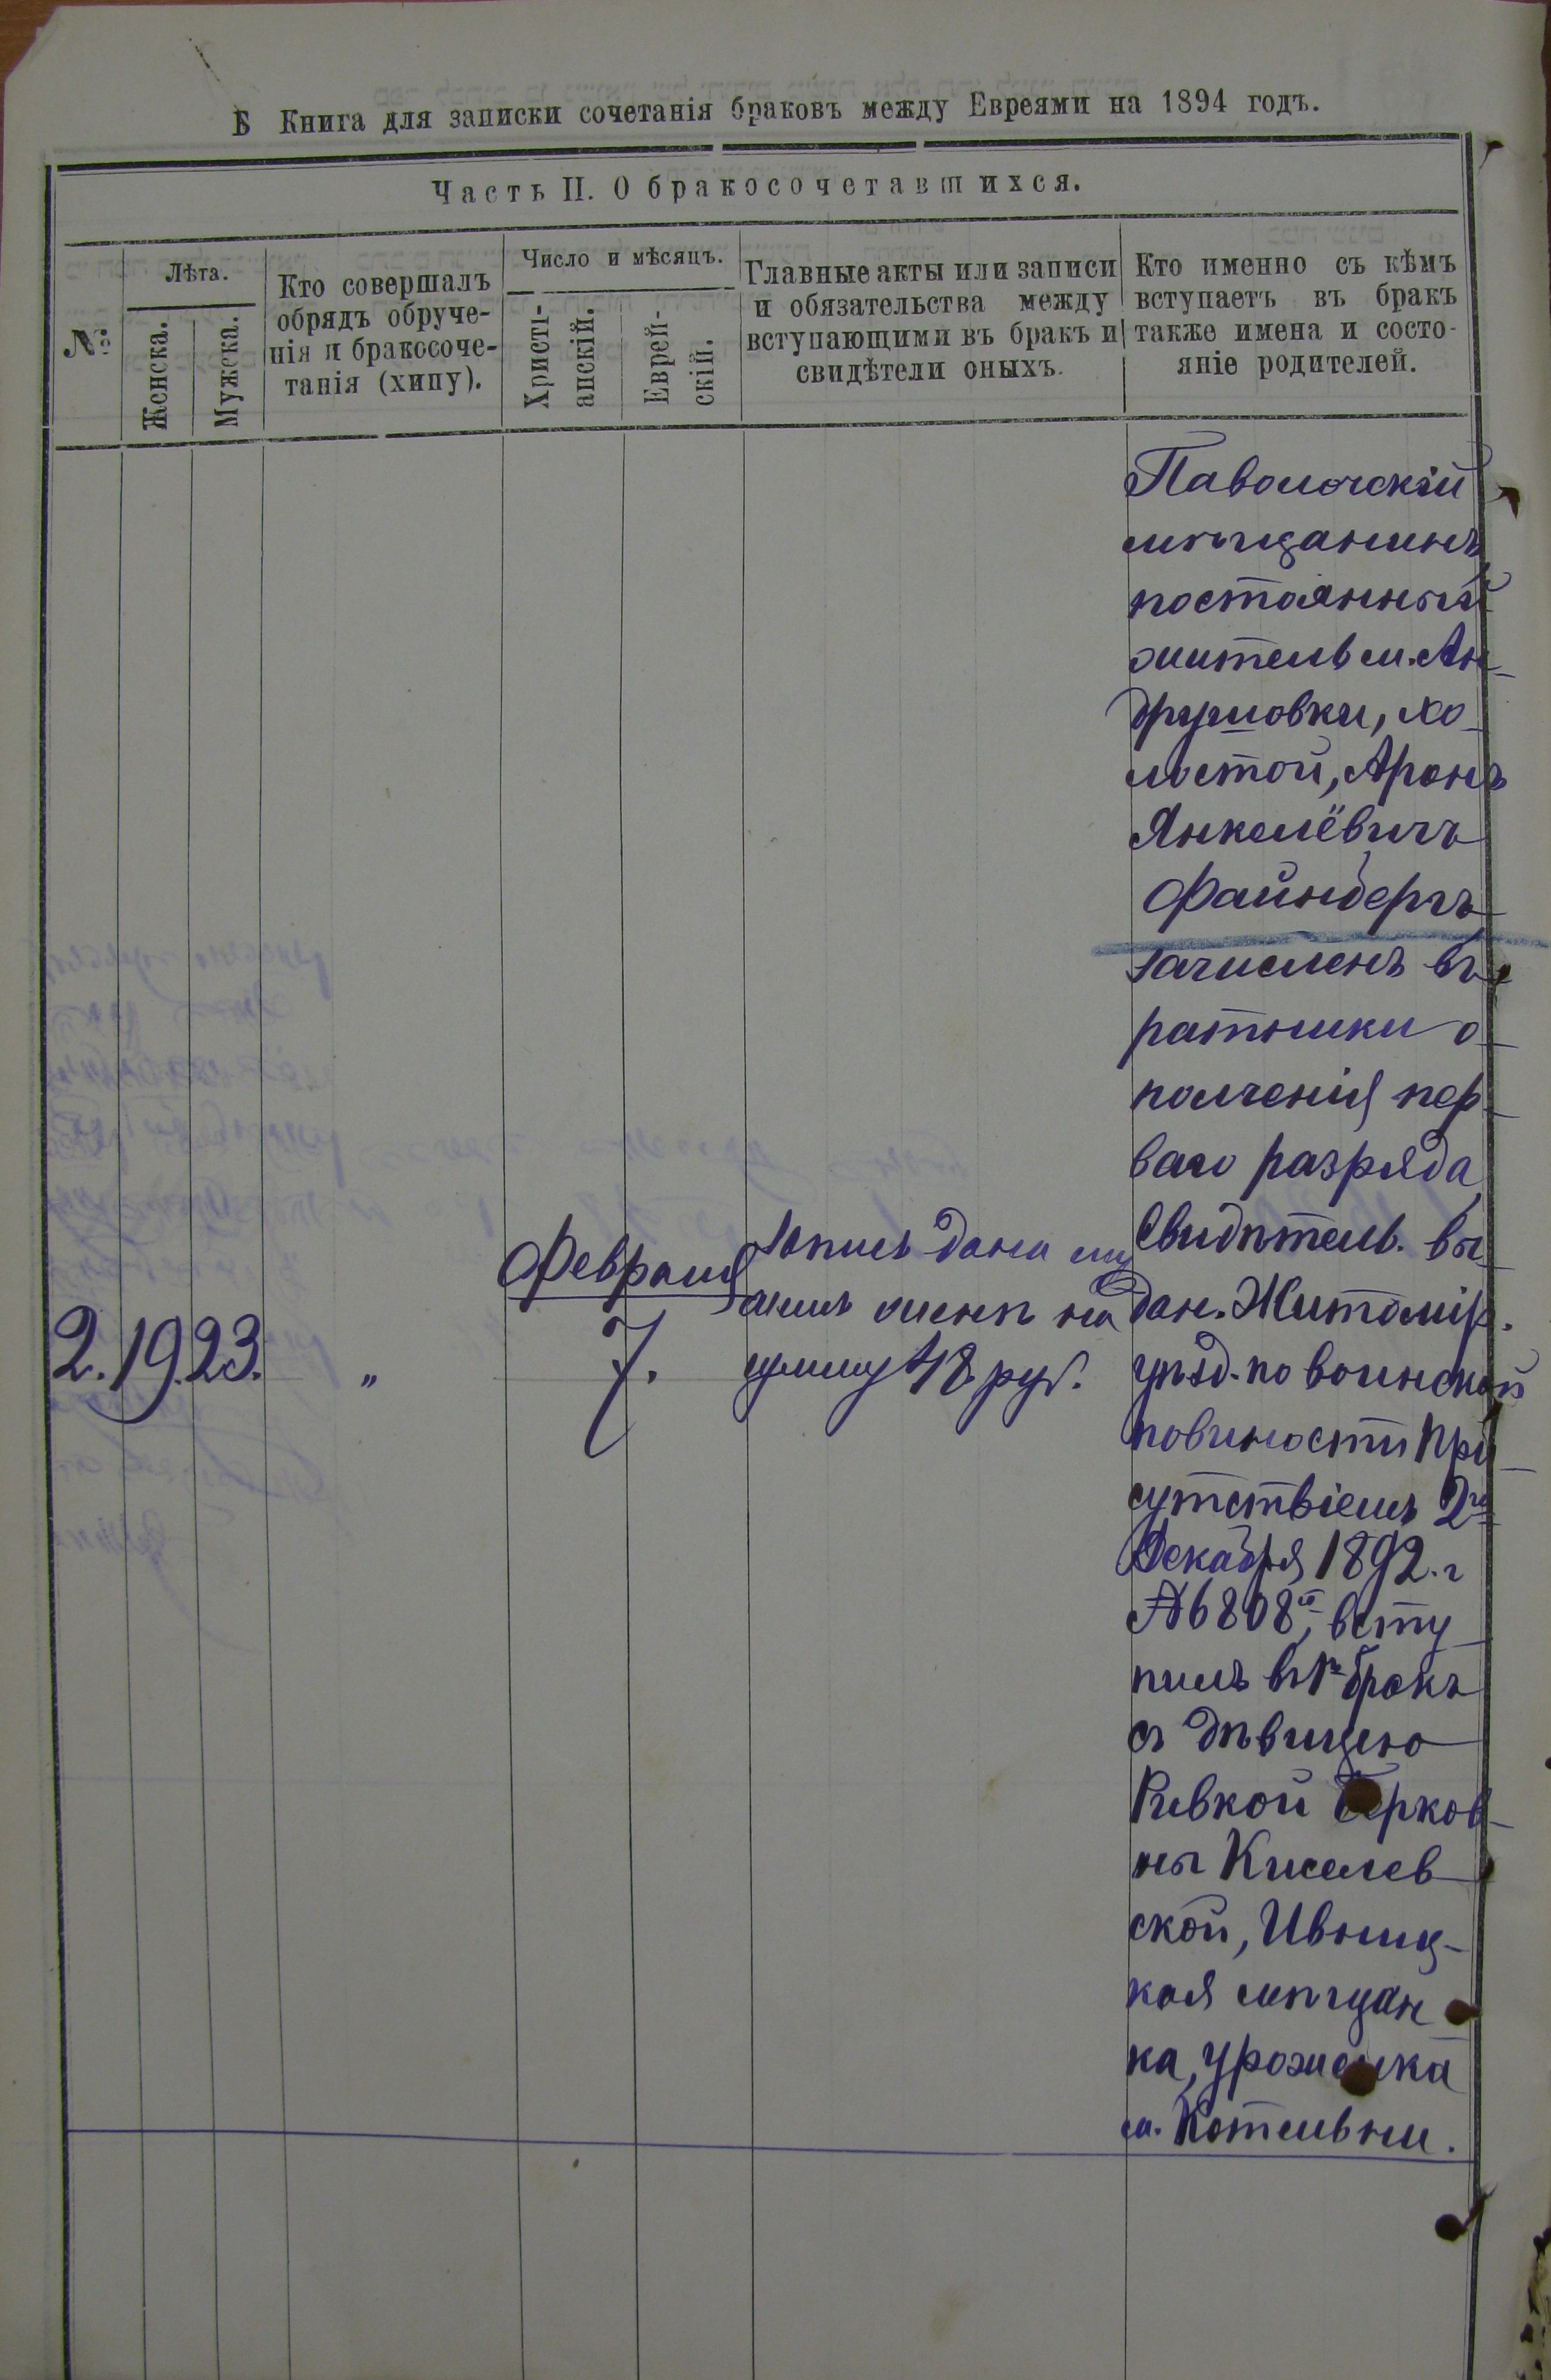 Б Книга для записки сочетанія браковъ между Евреями на 1894 годъ.
Часть II. О бракосочетавшихся.
№
Лѣта.
Женска.
Мужска.
Кто совершалъ
обрядъ обруче-
нія и бракосоче-
танія (хипу).
Число и мѣсяцъ.
Христі-
анскій.
Еврей-
скій.
Главные акты или записи
и обязательства между
вступающими въ бракъ и
свидѣтели оныхъ.
Кто именно съ кѣмъ
вступаетъ въ бракъ
также имена и состо-
яніе родителей.
2. 19. 23. „
Февраля
7.
Запись дана му
жемъ женѣ на
сумму 48 руб.
Паволочскій
мѣщанинъ
постоянный
житель м. Ан-
друшовки, хо-
лостой, Аронъ
Янкелёвичъ
Файнбергъ
зачисленъ въ
ратники о-
полченія пер-
ваго разряда
Свидѣтель. вы-
дан. Житомір.
уѣзд. по воинской
повиности При-
сутствіемъ 2го
Декабря 1892. г
№ 6808й, всту-
пилъ въ 1й бракъ
съ дѣвицею
Ривкой Берков-
ны Киселев
ской, Ивниц-
кая мѣщан
ка, уроженка
м. Котельни.